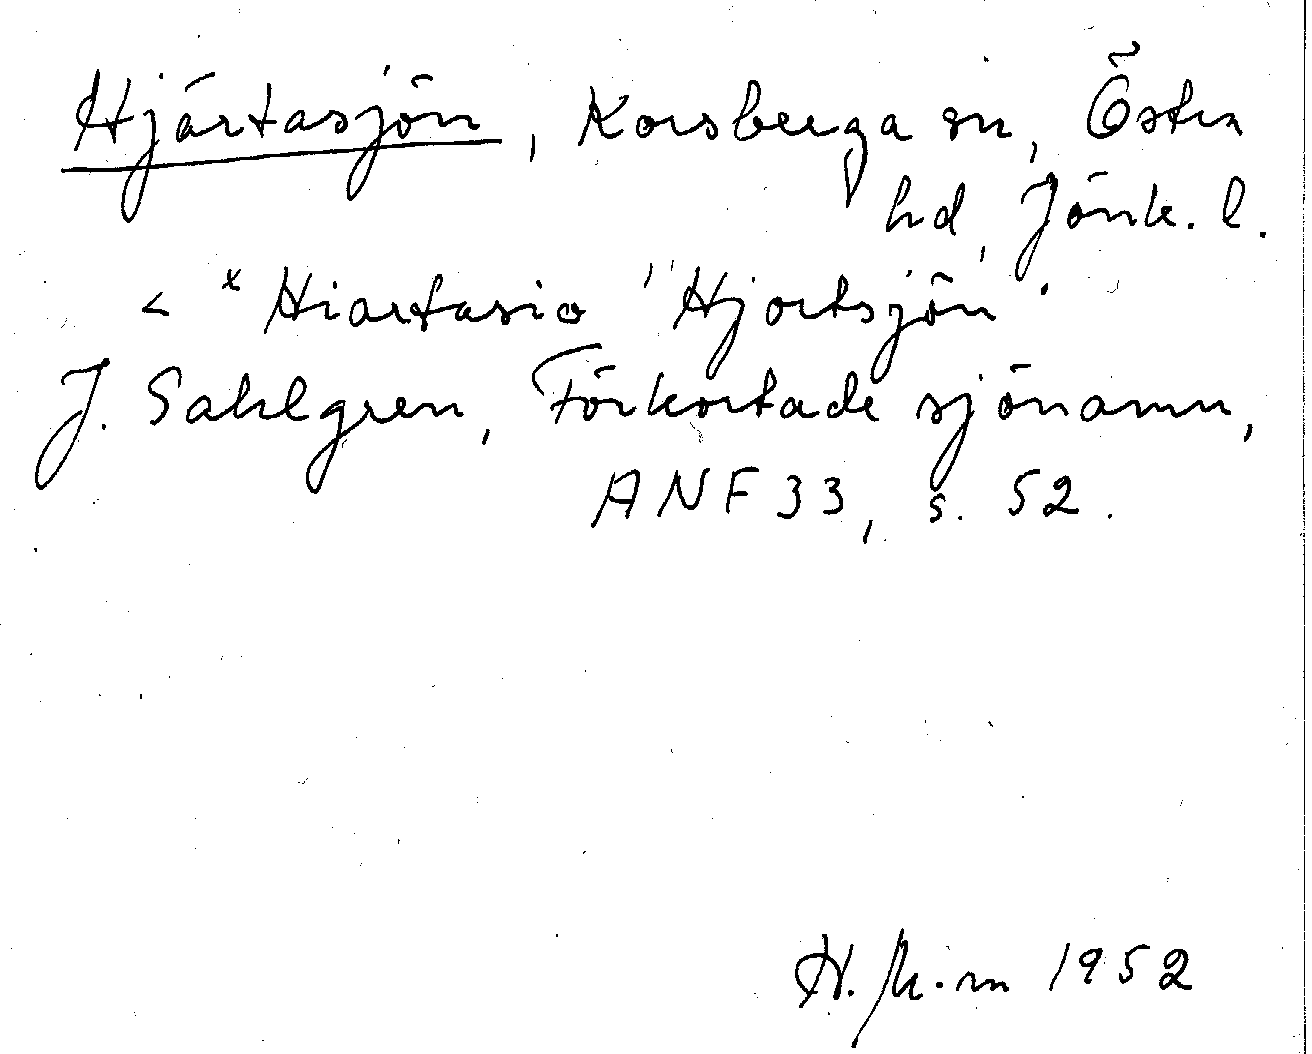 Hjärtasjön, Korsberga sn, Östra
hd, Jönk. l.
< *Hiartasio "Hjortsjön".
J. Sahlgren, Förkortade sjönamn,
ANF 33, s. 52.
H. 1952